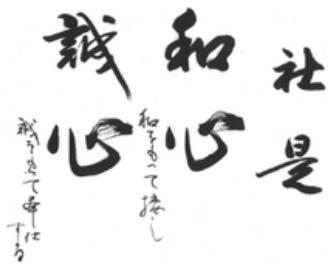 社是
和心
和をもって接し
誠心
誠を以て奉仕
する